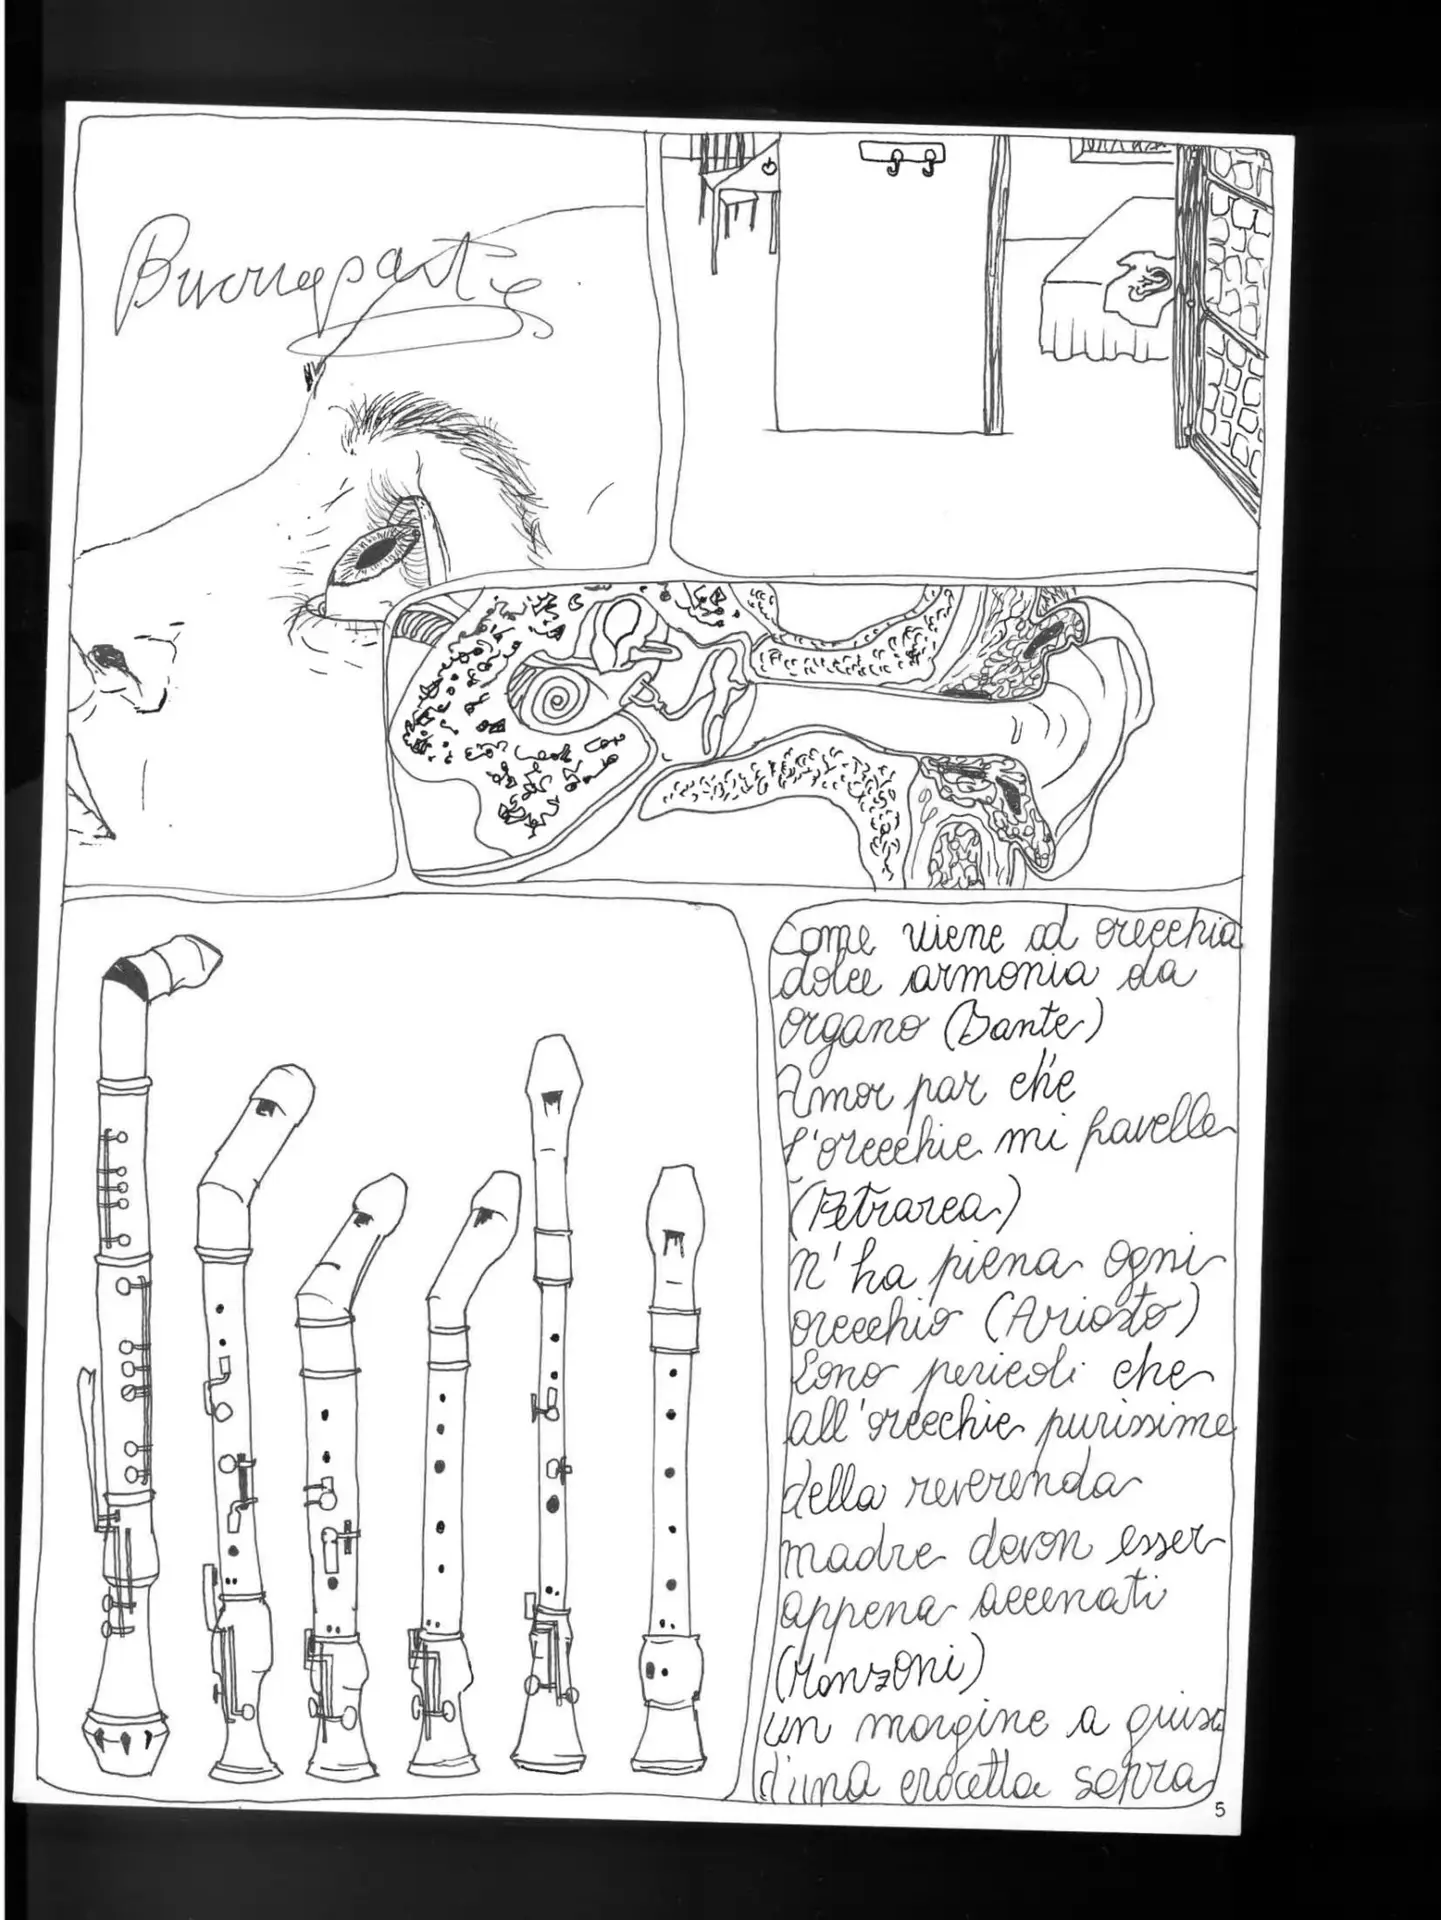 Buonaparte
Come viene ad orecchia
dolce armonia da
organo (Dante)
Amor par ch'e
l'orecchie mi favelle
(Petrarca)
n'ha piena ogni
orecchio (Ariosto)
Sono pericoli che
all'orecchie purissime
della reverenda
madre devon esser
appena accenati
(Manzoni)
un margine a guisa
d'una crocetta sopra
5